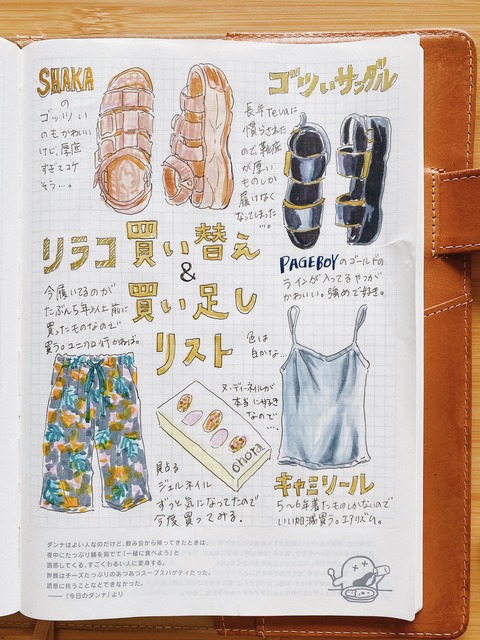 SHAKA
の
ゴッツい
のもかわいい
けど、厚底
すぎてコケ
そう…。
ゴッツいサンダル
長年Tevaに
慣らされた
ので、靴底
が厚い
ものしか
履けなく
なってしまった
…。
PAGEBOYのゴールドの
ラインが入ってるやつが
かわいい。強めで好き。
買い替え
&
買い足し
リスト
リラコ
今履いてるのが
たぶん5年以上前に
買ったものなので
買う。ユニクロ行かねば。
色は
白かな…
ヌーディーネイルが
本当に好き
なので
…。
ohora
貼る
ジェルネイル
ずっと気になってたので
今度買ってみる。
キャミソール
5〜6年着たものしかないので
いい加減買う。エアリズム。
ダンナはよい人なのだけど、飲み会から帰ってきたときは、
夜中にたっぷり麺を茹でて「一緒に食べよう」と
誘惑してくる、すごくわるい人に変身する。
昨晩はチーズたっぷりのあつあつスープスパゲティだった。
誘惑に抗うことなどできなかった。
——『今日のダンナ』より